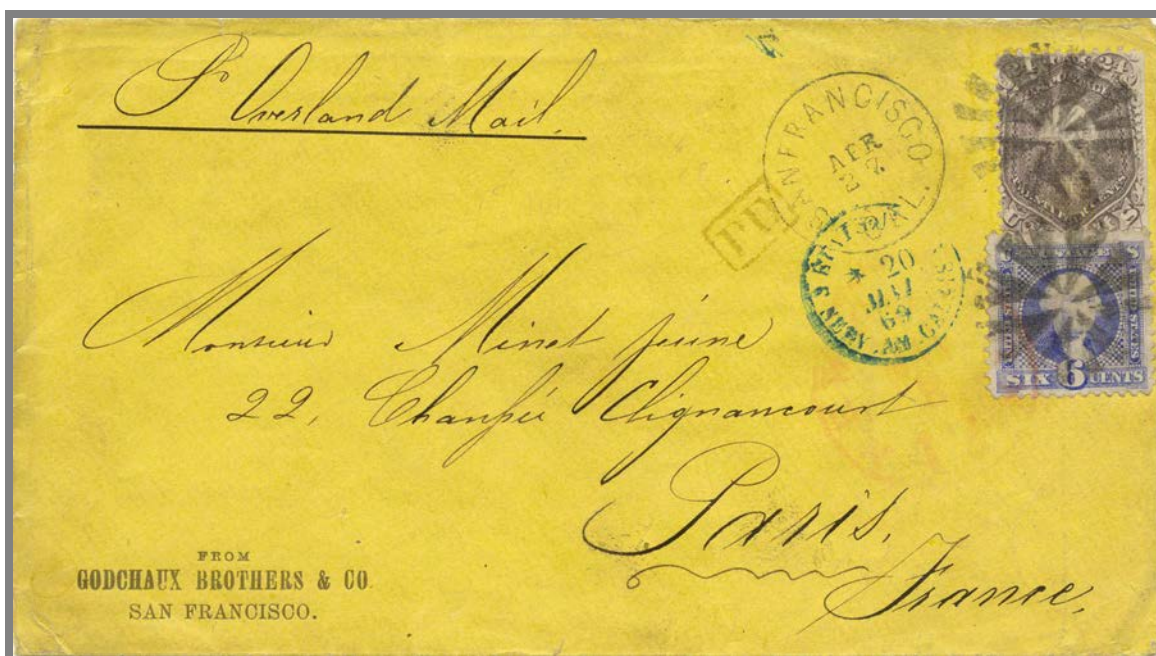 Pr Overland Mail.
SAN FRANCISCO
APR
27
CAL.
PD
20
MAI
69
CALAIS
24
SIX 6 CENTS
UNITED STATES
Monsieur Minet jeune
22, Chaussée Clignancourt
Paris.
France.
FROM
GODCHAUX BROTHERS & CO.
SAN FRANCISCO.